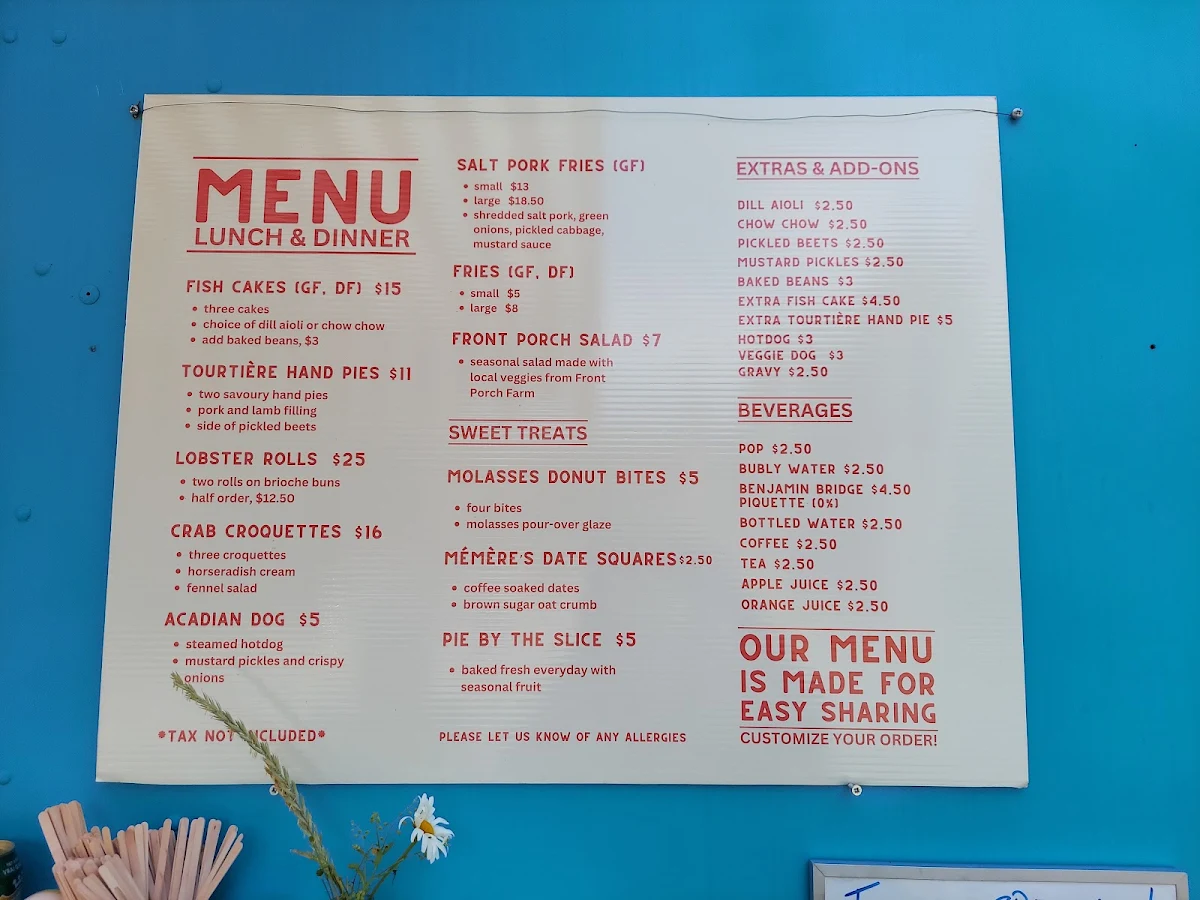 MENU
LUNCH & DINNER
FISH CAKES (GF, DF) $15
• three cakes
• choice of dill aioli or chow chow
• add baked beans, $3
TOURTIÈRE HAND PIES $11
• two savoury hand pies
• pork and lamb filling
• side of pickled beets
LOBSTER ROLLS $25
• two rolls on brioche buns
• half order, $12.50
CRAB CROQUETTES $16
• three croquettes
• horseradish cream
• fennel salad
ACADIAN DOG $5
• steamed hotdog
• mustard pickles and crispy
onions
*TAX NOT INCLUDED*
SALT PORK FRIES (GF)
• small $13
• large $18.50
• shredded salt pork, green
onions, pickled cabbage,
mustard sauce
FRIES (GF, DF)
• small $5
• large $8
FRONT PORCH SALAD $7
• seasonal salad made with
local veggies from Front
Porch Farm
SWEET TREATS
MOLASSES DONUT BITES $5
• four bites
• molasses pour-over glaze
MÉMÈRE'S DATE SQUARES $2.50
• coffee soaked dates
• brown sugar oat crumb
PIE BY THE SLICE $5
• baked fresh everyday with
seasonal fruit
PLEASE LET US KNOW OF ANY ALLERGIES
EXTRAS & ADD-ONS
DILL AIOLI $2.50
CHOW CHOW $2.50
PICKLED BEETS $2.50
MUSTARD PICKLES $2.50
BAKED BEANS $3
EXTRA FISH CAKE $4.50
EXTRA TOURTIÈRE HAND PIE $5
HOTDOG $3
VEGGIE DOG $3
GRAVY $2.50
BEVERAGES
POP $2.50
BUBLY WATER $2.50
BENJAMIN BRIDGE $4.50
PIQUETTE (0%)
BOTTLED WATER $2.50
COFFEE $2.50
TEA $2.50
APPLE JUICE $2.50
ORANGE JUICE $2.50
OUR MENU
IS MADE FOR
EASY SHARING
CUSTOMIZE YOUR ORDER!